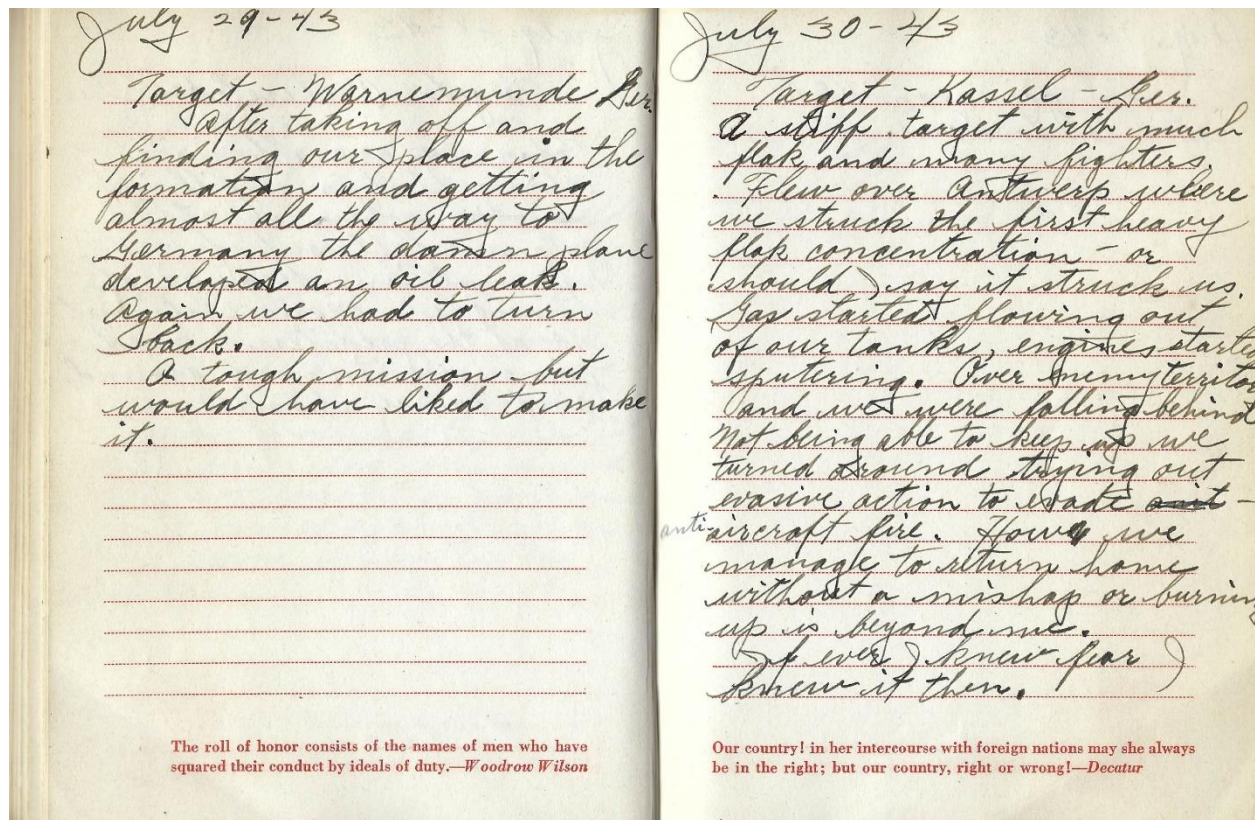 July 29-43
Target - Warnemunde Ger.
After taking off and
finding our place in the
formation and getting
almost all the way to
Germany the damn plane
developed an oil leak.
Again we had to turn
back.
A tough mission but
would have liked to make
it.
The roll of honor consists of the names of men who have
squared their conduct by ideals of duty.—Woodrow Wilson
July 30-43
Target - Kassel - Ger.
A stiff target with much
flak and many fighters.
Flew over Antwerp where
we struck the first heavy
flak concentration - or
should I say it struck us.
Gas started flowing out
of our tanks, engines starte
sputering. Over enemy territo
and we were falling behind
Not being able to keep up we
turned around trying out
evasive action to evade anit-
anti-aircraft fire. How we
manage to return home
without a mishap or burnin
up is beyond me.
If ever I knew fear I
knew it then.
Our country! in her intercourse with foreign nations may she always
be in the right; but our country, right or wrong!—Decatur